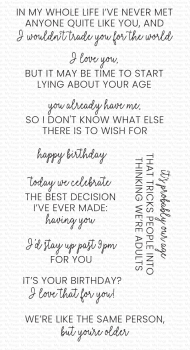 IN MY WHOLE LIFE I'VE NEVER MET
ANYONE QUITE LIKE YOU, AND
I wouldn't trade you for the world
I love you,
BUT IT MAY BE TIME TO START
LYING ABOUT YOUR AGE
you already have me,
SO I DON'T KNOW WHAT ELSE
THERE IS TO WISH FOR
happy birthday
today we celebrate
THE BEST DECISION
I'VE EVER MADE:
having you
it's probably our age
THAT TRICKS PEOPLE INTO
THINKING WE'RE ADULTS
I'd stay up past 9pm
FOR YOU
IT'S YOUR BIRTHDAY?
I love that for you!
WE'RE LIKE THE SAME PERSON,
but you're older